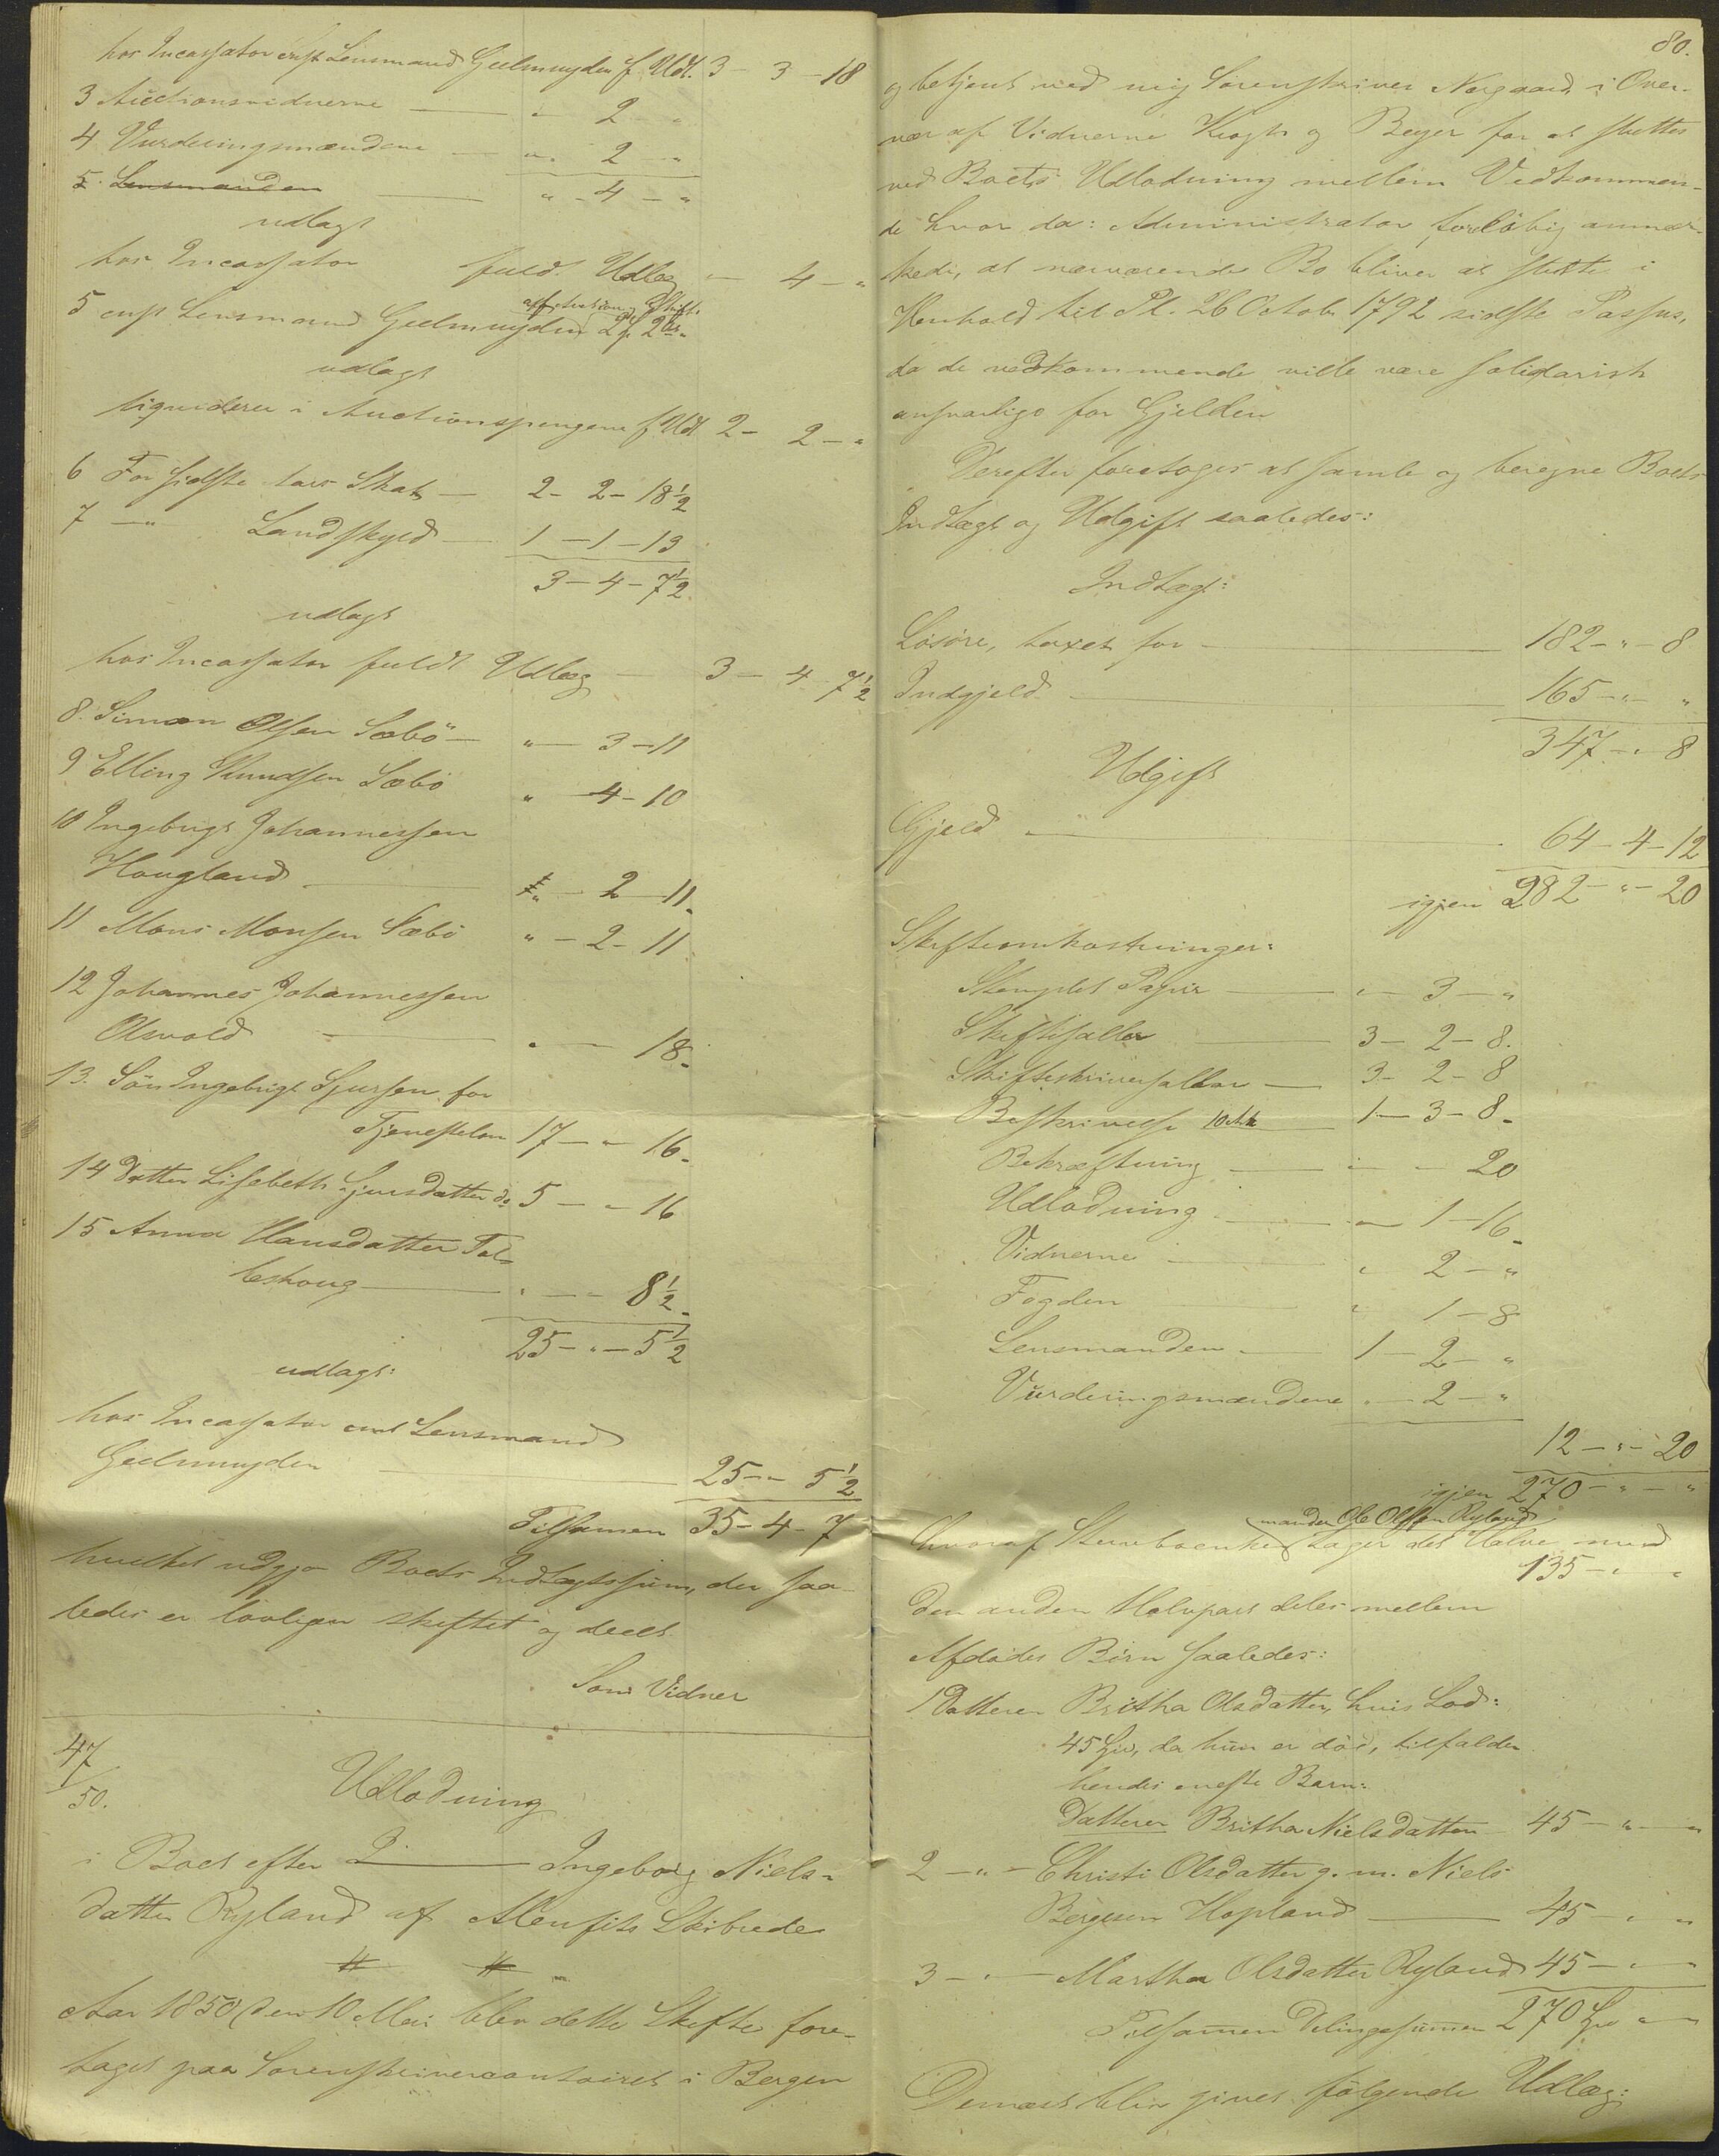 hos Incassator const Lensmand Geelmuyden f. Udl. 3 - 3 - 18
3 Auctionsvidnerne — " 2 "
4 Vurderingsmændene — " 2 - "
5. Lensmanden — " - 4 - "
udlagt
hos Incassator fuld. Udlæg — 4 - "
5 const Lensmand Geelmuyden
udlagt
liquiderer i Auctionspengene f. Udl 2 - 2 - "
6 For sidste Aars Skat — 2 - 2 - 18½
7 — " Landskyld — 1 - 1 - 13
3 - 4 - 7½
udlagt
hos Incassator fuldt Udlæg — 3 - 4 - 7½
8. Simon Olsen Sæbö — " - 3 - 11
9 Elling Knudsen Sæbö " 4 - 10
10 Ingebrigt Johannessen
Hougland — " - 2 - 11.
11 Mons Monsen Sæbö " - 2 - 11
12 Johannes Johannessen
Olsvold — " - 18.
13. Sön Ingebrigt Sjursen for
Tjenestelön 17 - " - 16.
14 Datter Lisebeth Sjursdatter do 5 - " - 16
15 Anna Hansdatter
" - - 8½.
25 - " - 5½
udlagt:
hos Incassator const Lensmand
Geelmuyden — 25 - " 5½
Tilsamen 35 - 4 - 7
hvilket udgjør Boets Indtægtssum, der saa-
ledes er lovligen skiftet og deelt.
Som Vidner
47/50.
Udlodning
i Boet efter Ingeborg Niels-
datter Ryland af Alenfits Skibrede
Aar 1850 den 10 Mai blev dette Skifte fore-
taget paa Sorenskrivercontoiret i Bergen
80.
og betjent ved mig Sorenskriver Norgaard i Over-
vær af Vidnerne Krogh og Beyer for at sluttes
ved Boets Udlodning mellem Vedkommen-
de hvor da: Administrator forelöbig anmær-
kede, at nærværende Bo bliver at slutte i
Henhold til Pl. 26 Octob. 1792 sidste Passus,
da de vedkommende ville være solidarisk
ansvarlige for Gjelden
Derefter foretoges at samle og beregne Boets
Indtægt og Udgift saaledes:
Indtægt:
Lösöre, taxet for — 182 - " - 8
Indgjeld — 165 - " - "
347 - " - 8
Udgift
Gjeld — 64 - 4 - 12
igjen 282 - " - 20
Skifteomkostninger:
Stemplet Papir — " - 3 - "
Skiftesallar — 3 - 2 - 8.
Skifteskriversallar — 3 - 2 - 8
Beskrivelse 10 Ark — 1 - 3 - 8.
Bekræftning — " - 20
Udlodning — " - 1 - 16.
Vidnerne — " 2 - "
Fogden — " 1 - 8
Lensmanden — 1 - 2 - "
Vurderingsmændene " - 2 - "
12 - " - 20
igjen 270 - " - "
manden Ole Olsen Ryland
hvoraf Sterbeenke tager det Halve med
135 - " - "
Den anden Halvpart deles mellem
Afdødes Börn saaledes:
1 Datteren Britha Olsdatter, hvis Lod:
45 , da hun er död, tilfalder
hendes eneste Barn:
Datteren Britha Nielsdatter — 45 - " - "
2 — " — Christi Olsdatter g. m. Niels
Börgesen Hopland — 45 - " - "
3 — " — Martha Olsdatter Ryland 45 - " - "
Tilsamen Delingssummen 270 " - "
Dernæst blev givet fölgende Udlæg: